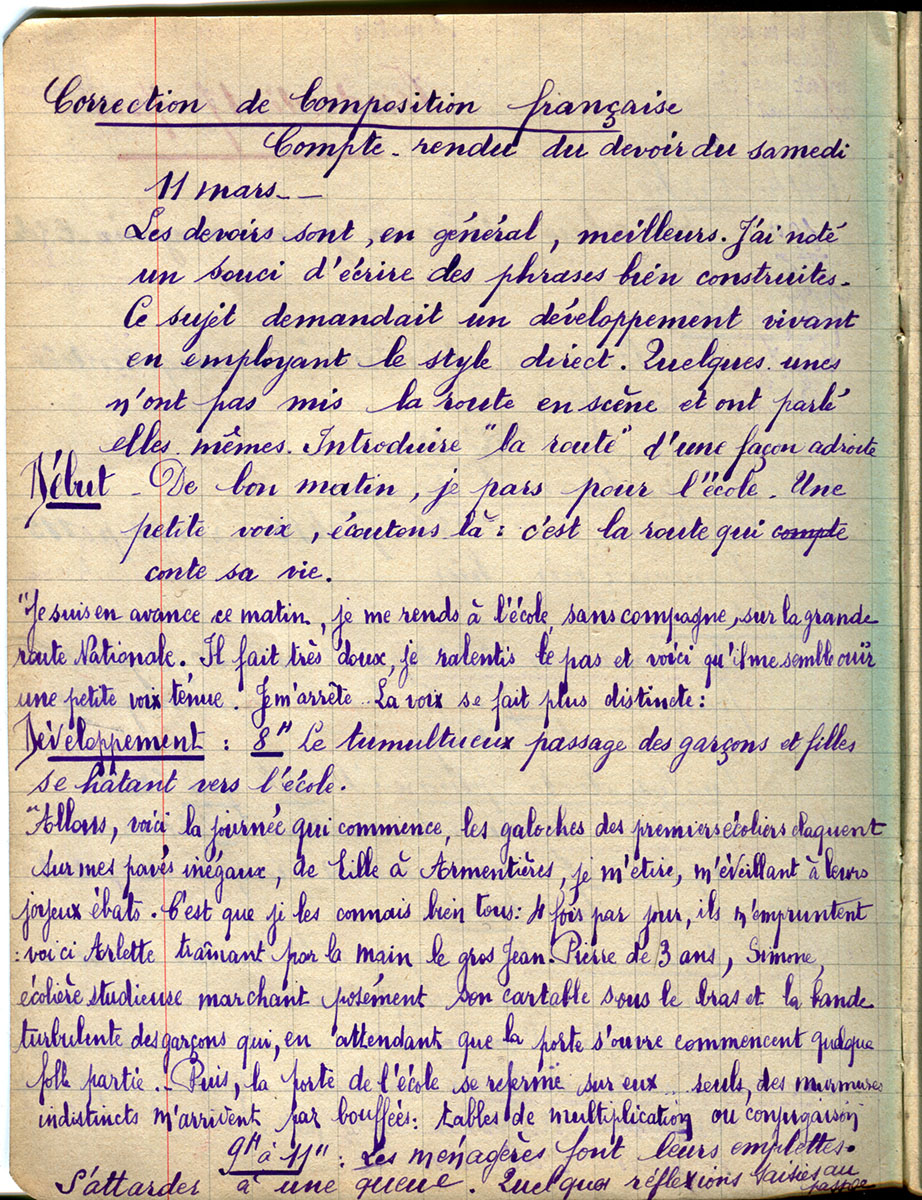 Correction de Composition française
Compte-rendu du devoir du samedi
11 mars--
Les devoirs sont, en général, meilleurs. J'ai noté
un souci d'écrire des phrases bien construites.
Ce sujet demandait un développement vivant
en employant le style direct. Quelques unes
n'ont pas mis la route en scène et ont parlé
elles mêmes. Introduire "la route" d'une façon adroite
Début - De bon matin, je pars pour l'école. Une
petite voix, écoutons là : c'est la route qui compte
conte sa vie.
"Je suis en avance ce matin, je me rends à l'école sans compagne, sur la grande
route Nationale. Il fait très doux, je ralentis le pas et voici qu'il me semble ouïr
une petite voix ténue. Je m'arrête.. La voix se fait plus distincte :
Développement : 8H Le tumultueux passage des garçons et filles
se hâtant vers l'école.
"Allons, voici la journée qui commence, les galoches des premiers écoliers claquent
sur mes pavés inégaux, de Lille à Armentières, je m'étire, m'éveillant à leurs
joyeux ébats. C'est que je les connais bien tous : 4 fois par jour, ils m'empruntent
: voici Arlette traînant par la main le gros Jean-Pierre de 3 ans, Simone,
écolière studieuse marchant posément son cartable sous le bras et la bande
turbulente des garçons qui, en attendant que la porte s'ouvre commencent quelque
folle partie.. Puis, la porte de l'école se referme sur eux... seuls, des murmures
indistincts m'arrivent par bouffées : tables de multiplication ou conjugaison
9H à 11H : Les ménagères font leurs emplettes.
S'attarder à une queue. Quelques réflexions saisies au
passage